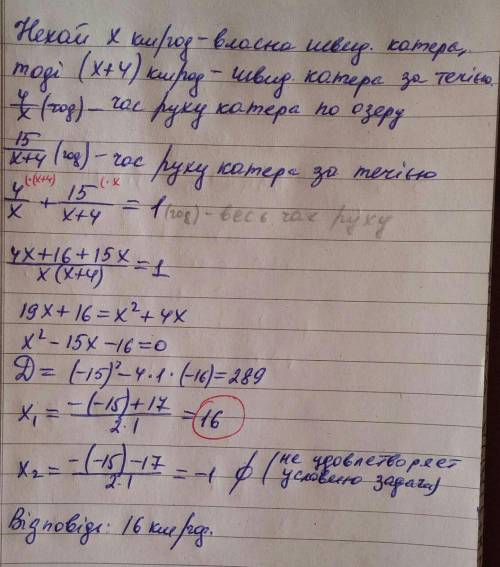 Нехай x км/год - власна швид. катера,
тоді (x+4) км/год - швид. катера за течією.
4/x (год) - час руху катера по озеру
15/(x+4) (год) - час руху катера за течією
4/x (·(x+4) + 15/(x+4) (·x = 1 (год) - весь час руху
(4x+16+15x)/(x(x+4)) = 1
19x+16=x²+4x
x²-15x-16=0
D = (-15)²-4·1·(-16)=289
x₁ = (-(-15)+17)/(2·1) = 16
x₂ = (-(-15)-17)/(2·1) = -1 ∅ (не удовлетворяет
условию задачи)
Відповідь: 16 км/год.